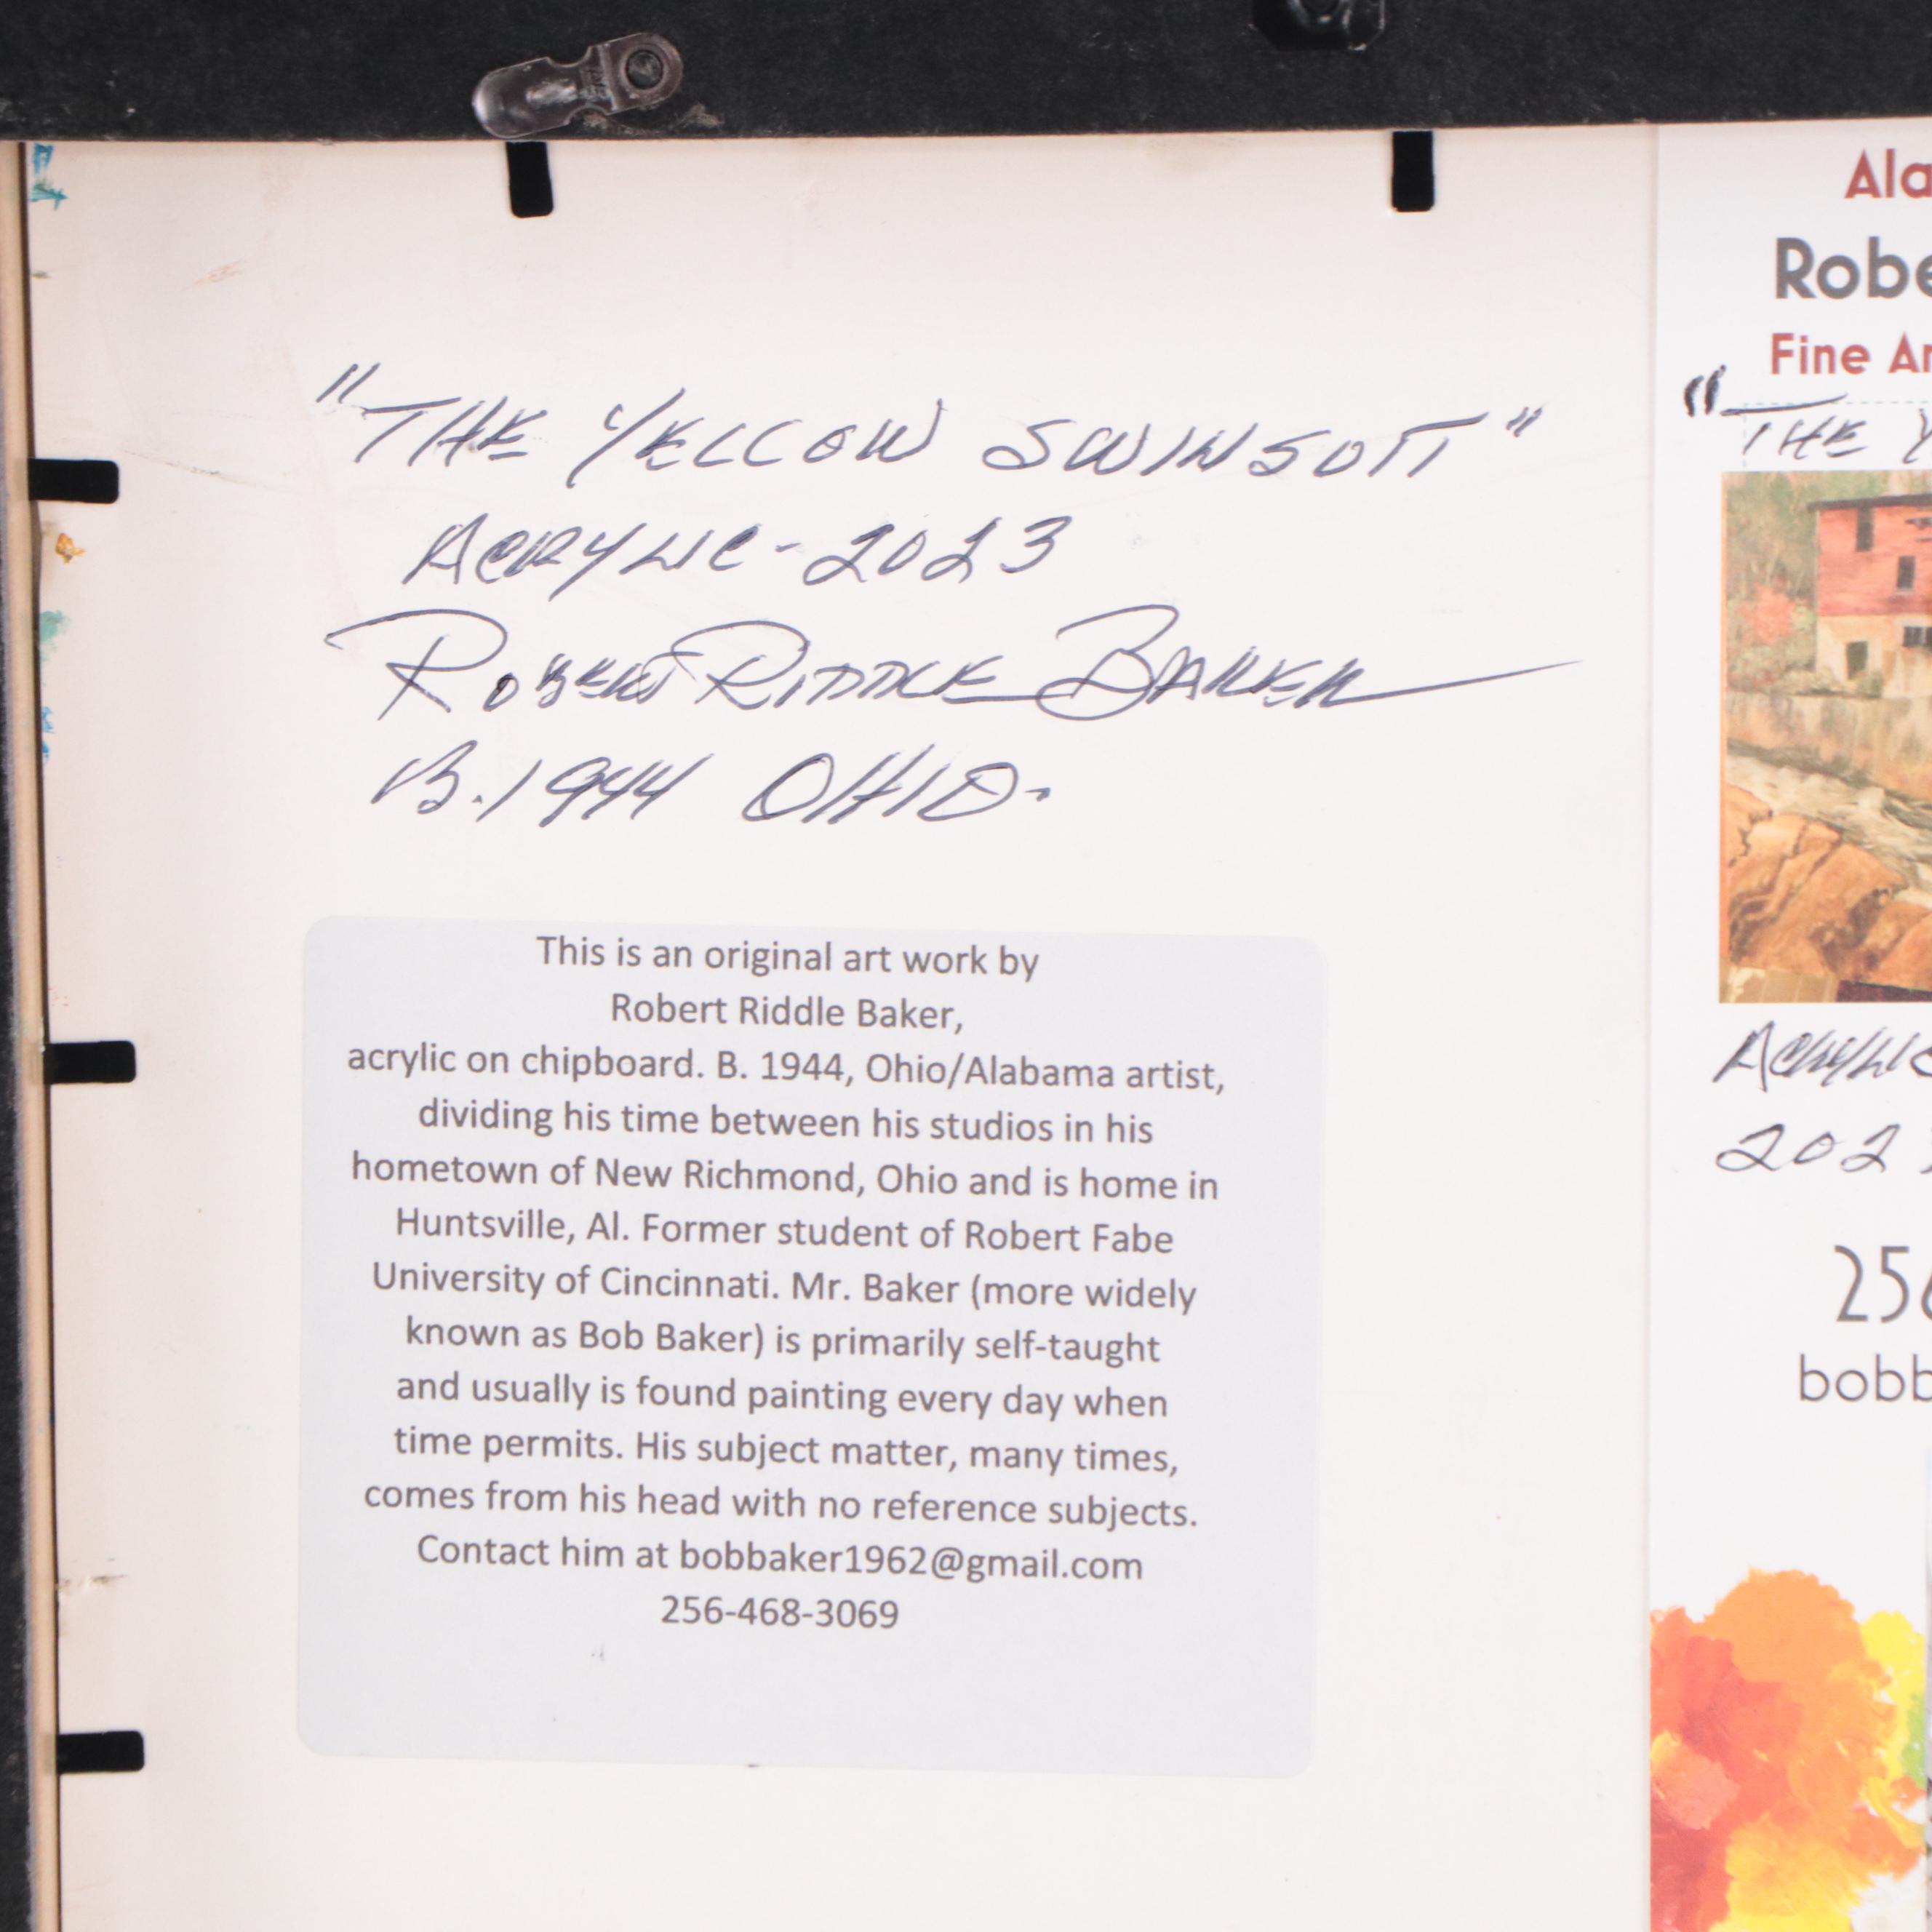 "THE YELLOW SWIMSUIT"
ACRYLIC-2023
ROBERT RIDDLE BAKER
B. 1944 OHIO.
This is an original art work by
Robert Riddle Baker,
acrylic on chipboard. B. 1944, Ohio/Alabama artist,
dividing his time between his studios in his
hometown of New Richmond, Ohio and is home in
Huntsville, Al. Former student of Robert Fabe
University of Cincinnati. Mr. Baker (more widely
known as Bob Baker) is primarily self-taught
and usually is found painting every day when
time permits. His subject matter, many times,
comes from his head with no reference subjects.
Contact him at bobbaker1962@gmail.com
256-468-3069
Ala
Robe
Fine Ar
"THE Y
ACRYLIC
202
256
bobb